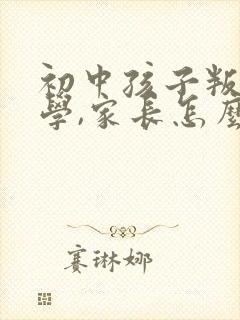 初中孩子叛
學,家長怎麼
賽琳娜